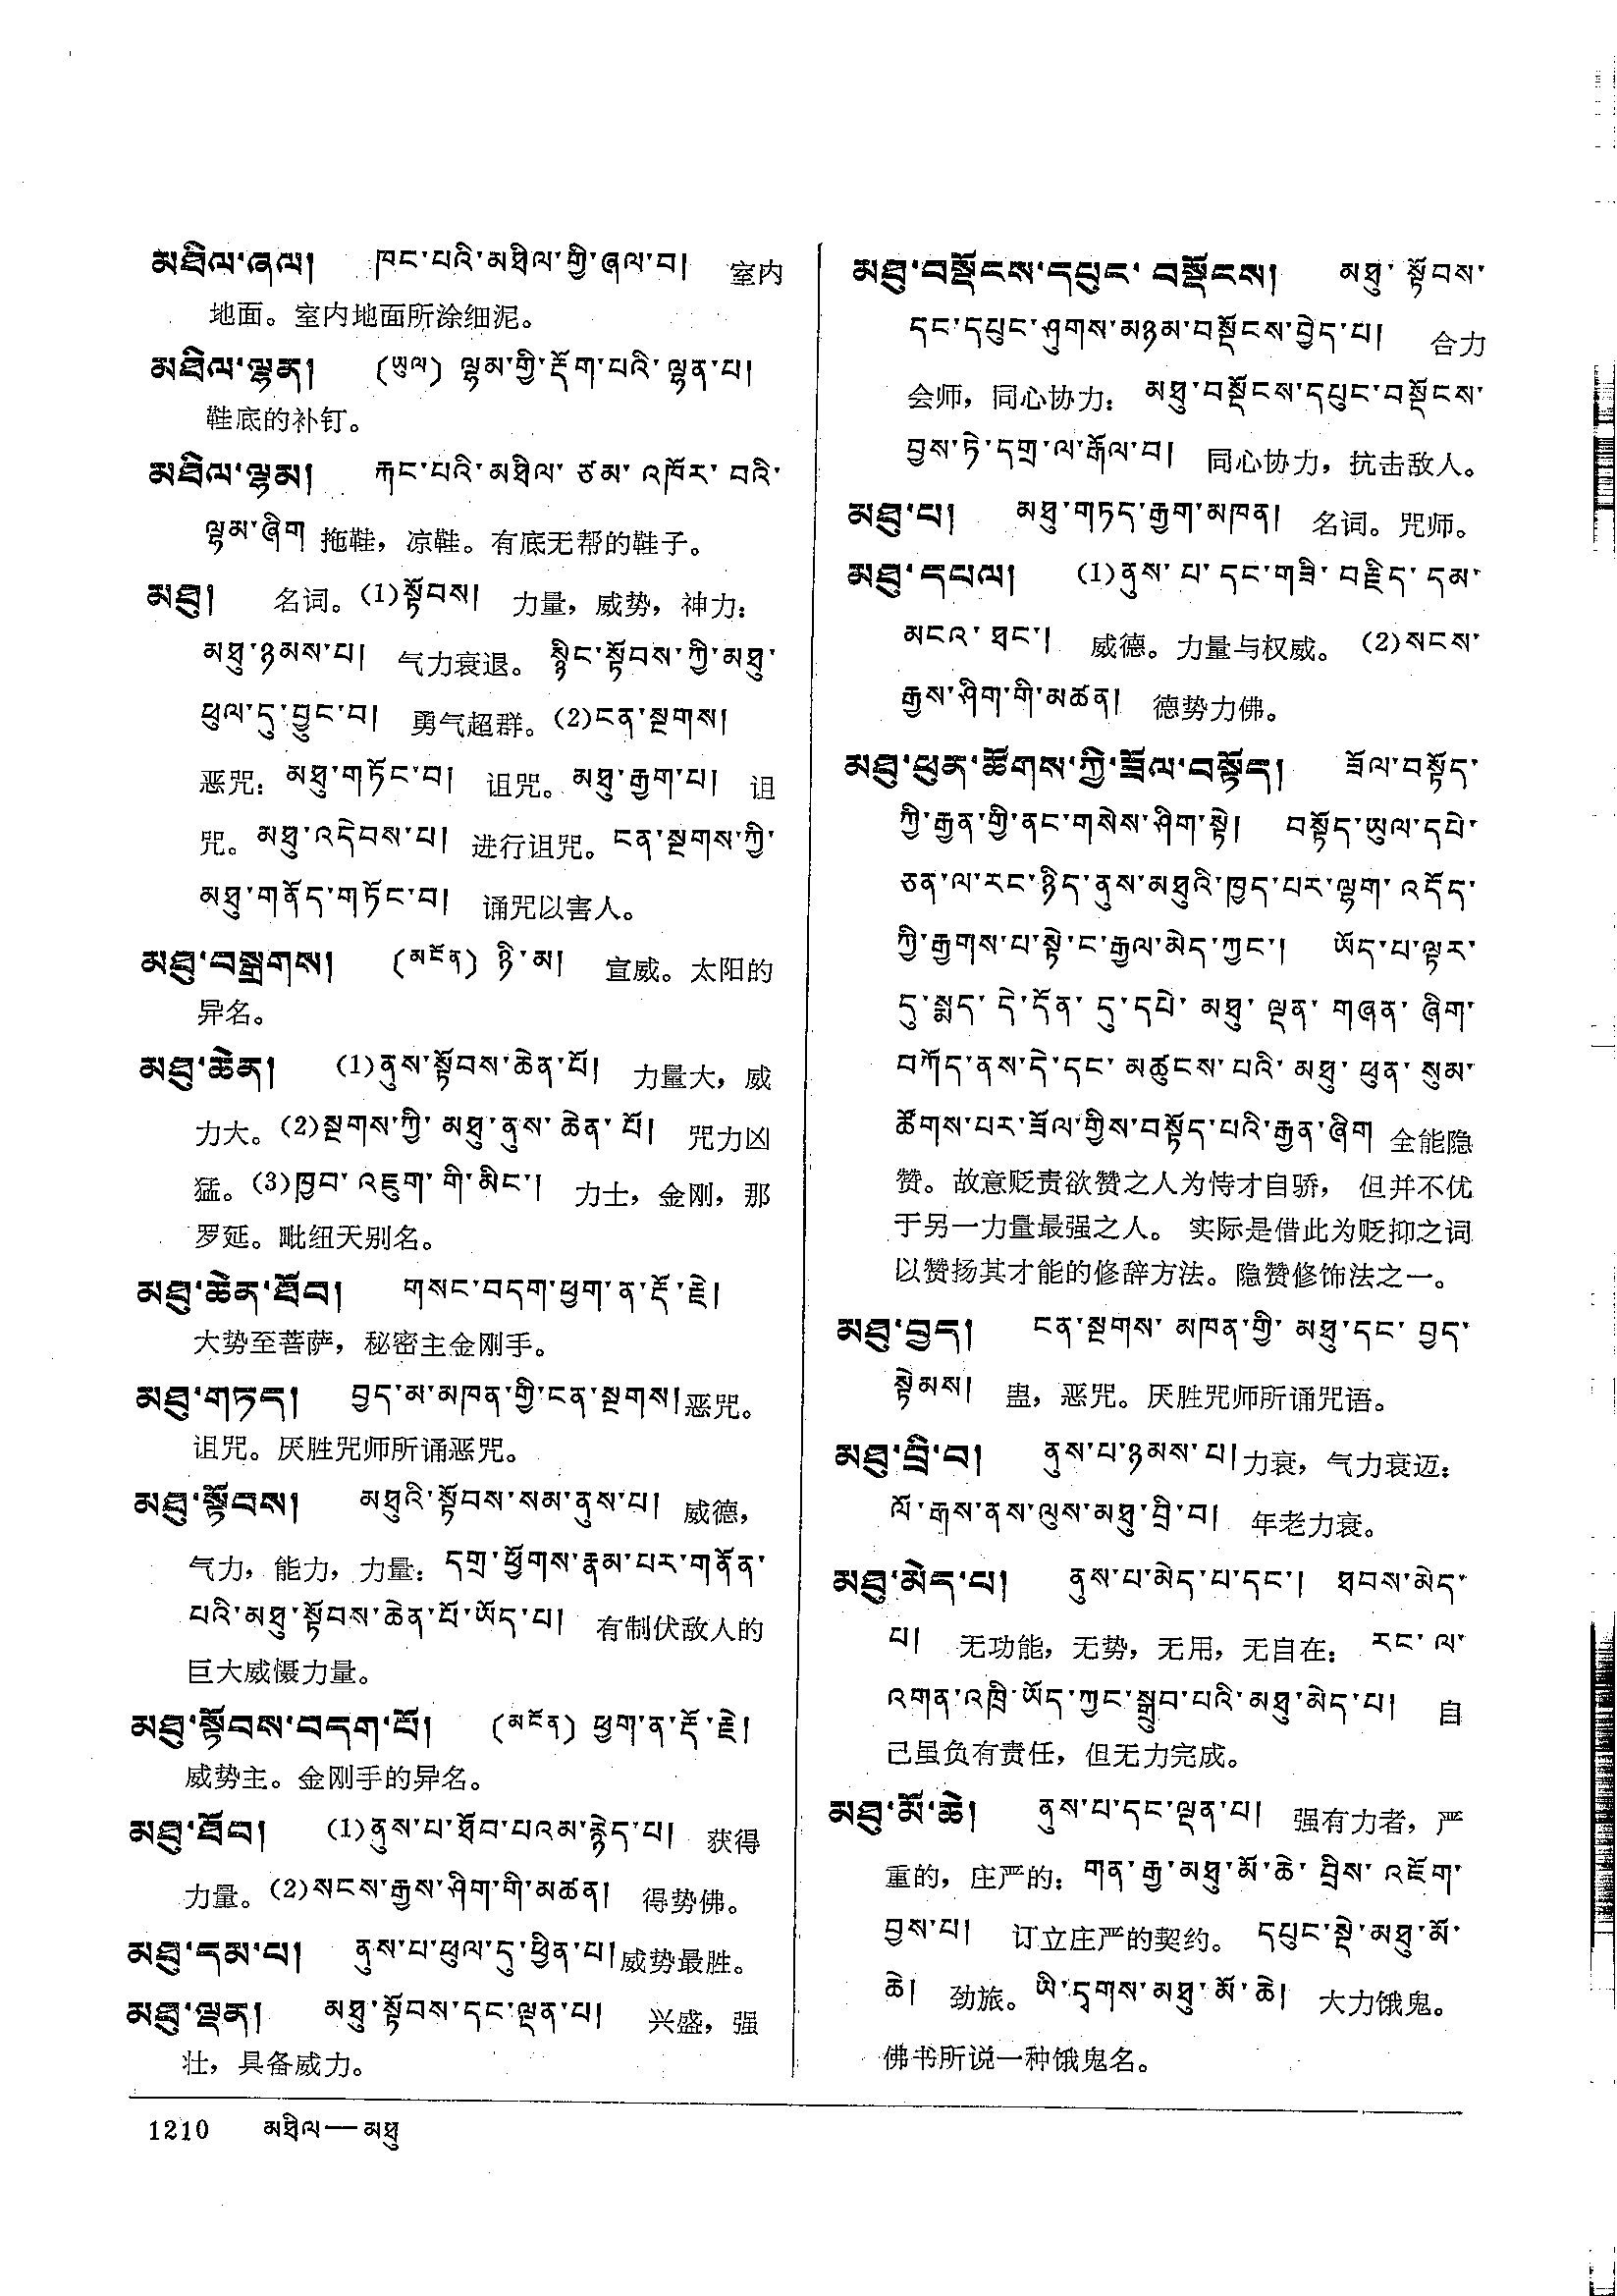 མཐིལ་ཞལ། ཁང་པའི་མཐིལ་གྱི་ཞལ་བ། 室内
地面。室内地面所涂细泥。
མཐིལ་ལྷན། (ཡུལ) ལྷམ་གྱི་རྡོག་པའི་ལྷན་པ།
鞋底的补钉。
མཐིལ་ལྷམ། རྐང་པའི་མཐིལ་ཙམ་འཁོར་བའི་
ལྷམ་ཞིག 拖鞋，凉鞋。有底无帮的鞋子。
མཐུ། 名词。(1)སྟོབས། 力量，威势，神力：
མཐུ་ཉམས་པ། 气力衰退。སྙིང་སྟོབས་ཀྱི་མཐུ་
ཕུལ་དུ་བྱུང་བ། 勇气超群。(2)ངན་སྔགས།
恶咒：མཐུ་གཏོང་བ། 诅咒。མཐུ་རྒྱག་པ། 诅
咒。མཐུ་འདེབས་པ། 进行诅咒。ངན་སྔགས་ཀྱི་
མཐུ་གནོད་གཏོང་བ། 诵咒以害人。
མཐུ་བསྒྲགས། (མངོན) ཉི་མ། 宣威。太阳的
异名。
མཐུ་ཆེན། (1)ནུས་སྟོབས་ཆེན་པོ། 力量大，威
力大。(2)སྔགས་ཀྱི་མཐུ་ནུས་ཆེན་པོ། 咒力凶
猛。(3)ཁྱབ་འཇུག་གི་མིང་། 力士，金刚，那
罗延。毗纽天别名。
མཐུ་ཆེན་ཐོབ། གསང་བདག་ཕྱག་ན་རྡོ་རྗེ།
大势至菩萨，秘密主金刚手。
མཐུ་གཏད། བྱད་མ་མཁན་གྱི་ངན་སྔགས། 恶咒。
诅咒。厌胜咒师所诵恶咒。
མཐུ་སྟོབས། མཐུའི་སྟོབས་སམ་ནུས་པ། 威德，
气力，能力，力量：དགྲ་ཕྱོགས་རྣམ་པར་གནོན་
པའི་མཐུ་སྟོབས་ཆེན་པོ་ཡོད་པ། 有制伏敌人的
巨大威慑力量。
མཐུ་སྟོབས་བདག་པོ། (མངོན) ཕྱག་ན་རྡོ་རྗེ།
威势主。金刚手的异名。
མཐུ་ཐོབ། (1)ནུས་པ་ཐོབ་པའམ་རྙེད་པ། 获得
力量。(2)སངས་རྒྱས་ཤིག་གི་མཚན། 得势佛。
མཐུ་དམ་པ། ནུས་པ་ཕུལ་དུ་ཕྱིན་པ། 威势最胜。
མཐུ་ལྡན། མཐུ་སྟོབས་དང་ལྡན་པ། 兴盛，强
壮，具备威力。
མཐུ་བསྡོངས་དཔུང་བསྡོངས། མཐུ་སྟོབས་
དང་དཔུང་ཤུགས་མཉམ་བསྡོངས་བྱེད་པ། 合力
会师，同心协力：མཐུ་བསྡོངས་དཔུང་བསྡོངས་
བྱས་ཏེ་དགྲ་ལ་རྒོལ་བ། 同心协力，抗击敌人。
མཐུ་པ། མཐུ་གཏད་རྒྱག་མཁན། 名词。咒师。
མཐུ་དཔལ། (1)ནུས་པ་དང་གཟི་བརྗིད་དམ་
མངའ་ཐང་། 威德。力量与权威。(2)སངས་
རྒྱས་ཤིག་གི་མཚན། 德势力佛。
མཐུ་ཕུན་ཚོགས་ཀྱི་ཟོལ་བསྟོད། ཟོལ་བསྟོད་
ཀྱི་རྒྱན་གྱི་ནང་གསེས་ཤིག་སྟེ། བསྟོད་ཡུལ་དཔེ་
ཅན་ལ་རང་ཉིད་ནུས་མཐུའི་ཁྱད་པར་ལྷག་འདོད་
ཀྱི་རྒྱགས་པ་སྟེ་ང་རྒྱལ་མེད་ཀྱང་། ཡོད་པ་ལྟར་
དུ་སྨད་དེ་དོན་དུ་དཔེ་མཐུ་ལྡན་གཞན་ཞིག་
བཀོད་ནས་དེ་དང་མཚུངས་པའི་མཐུ་ཕུན་སུམ་
ཚོགས་པར་ཟོལ་གྱིས་བསྟོད་པའི་རྒྱན་ཞིག 全能隐
赞。故意贬责欲赞之人为恃才自骄，但并不优
于另一力量最强之人。实际是借此为贬抑之词
以赞扬其才能的修辞方法。隐赞修饰法之一。
མཐུ་བྱད། ངན་སྔགས་མཁན་གྱི་མཐུ་དང་བྱད་
སྟེམས། 蛊，恶咒。厌胜咒师所诵咒语。
མཐུ་བྲི་བ། ནུས་པ་ཉམས་པ། 力衰，气力衰迈：
ལོ་རྒས་ནས་ལུས་མཐུ་བྲི་བ། 年老力衰。
མཐུ་མེད་པ། ནུས་པ་མེད་པ་དང་། ཐབས་མེད་
པ། 无功能，无势，无用，无自在：རང་ལ་
འགན་འཁྲི་ཡོད་ཀྱང་སྒྲུབ་པའི་མཐུ་མེད་པ། 自
己虽负有责任，但无力完成。
མཐུ་མོ་ཆེ། ནུས་པ་དང་ལྡན་པ། 强有力者，严
重的，庄严的：གན་རྒྱ་མཐུ་མོ་ཆེ་བྲིས་འཇོག་
བྱས་པ། 订立庄严的契约。དཔུང་སྡེ་མཐུ་མོ་
ཆེ། 劲旅。ཡི་དྭགས་མཐུ་མོ་ཆེ། 大力饿鬼。
佛书所说一种饿鬼名。
1210 མཐིལ—མཐུ